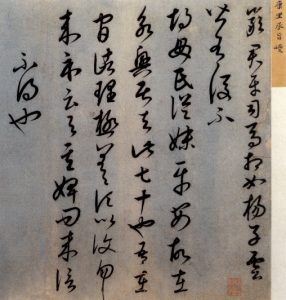 嚴君平司馬相如楊子雲
皆有後不
胡母氏從妹平安故在
永興居去此七十也吾在
官諸理極差頃比復勿勿
來示云與其婢問來信
不得也